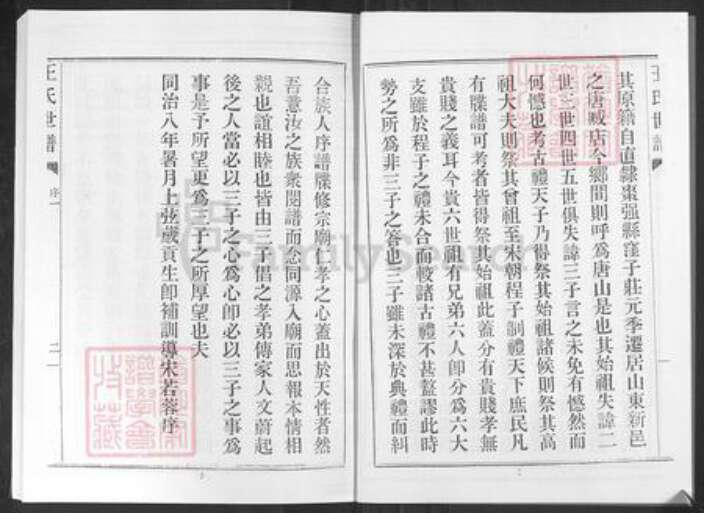 王氏世譜
其原籍自直隷棗强縣窪子莊元季遷居山東新邑
之唐㦯店今鄉間則呼為唐山是也其始祖失諱二
世三世四世五世俱失諱三子言之未免有憾然而
何憾也考古禮天子乃得祭其始祖諸候則祭其高
祖大夫則祭其曾祖至宋朝程子制禮天下庶民凡
有牒譜可考者皆得祭其始祖此蓋分有貴賤孝無
貴賤之義耳今貴六世祖有兄弟六人卽分為六大
支雖於程子之禮未合而較諸古禮不甚盭謬此時
勢之所為非三子之咎也三子雖未深於典禮而糾
合族人序譜牒修宗廟仁孝之心蓋出於天性者然
吾意汝之族衆閱譜而念同源入廟而思報本情相
親也誼相睦也皆由三子倡之孝弟傳家人文蔚起
後之人當必以三子之心為心卽必以三子之事為
事是予所望更為三子之所厚望也夫
同治八年暑月上弦歲貢生卽補訓導宋若蓉序
王氏世譜
序
二
FamilySearch